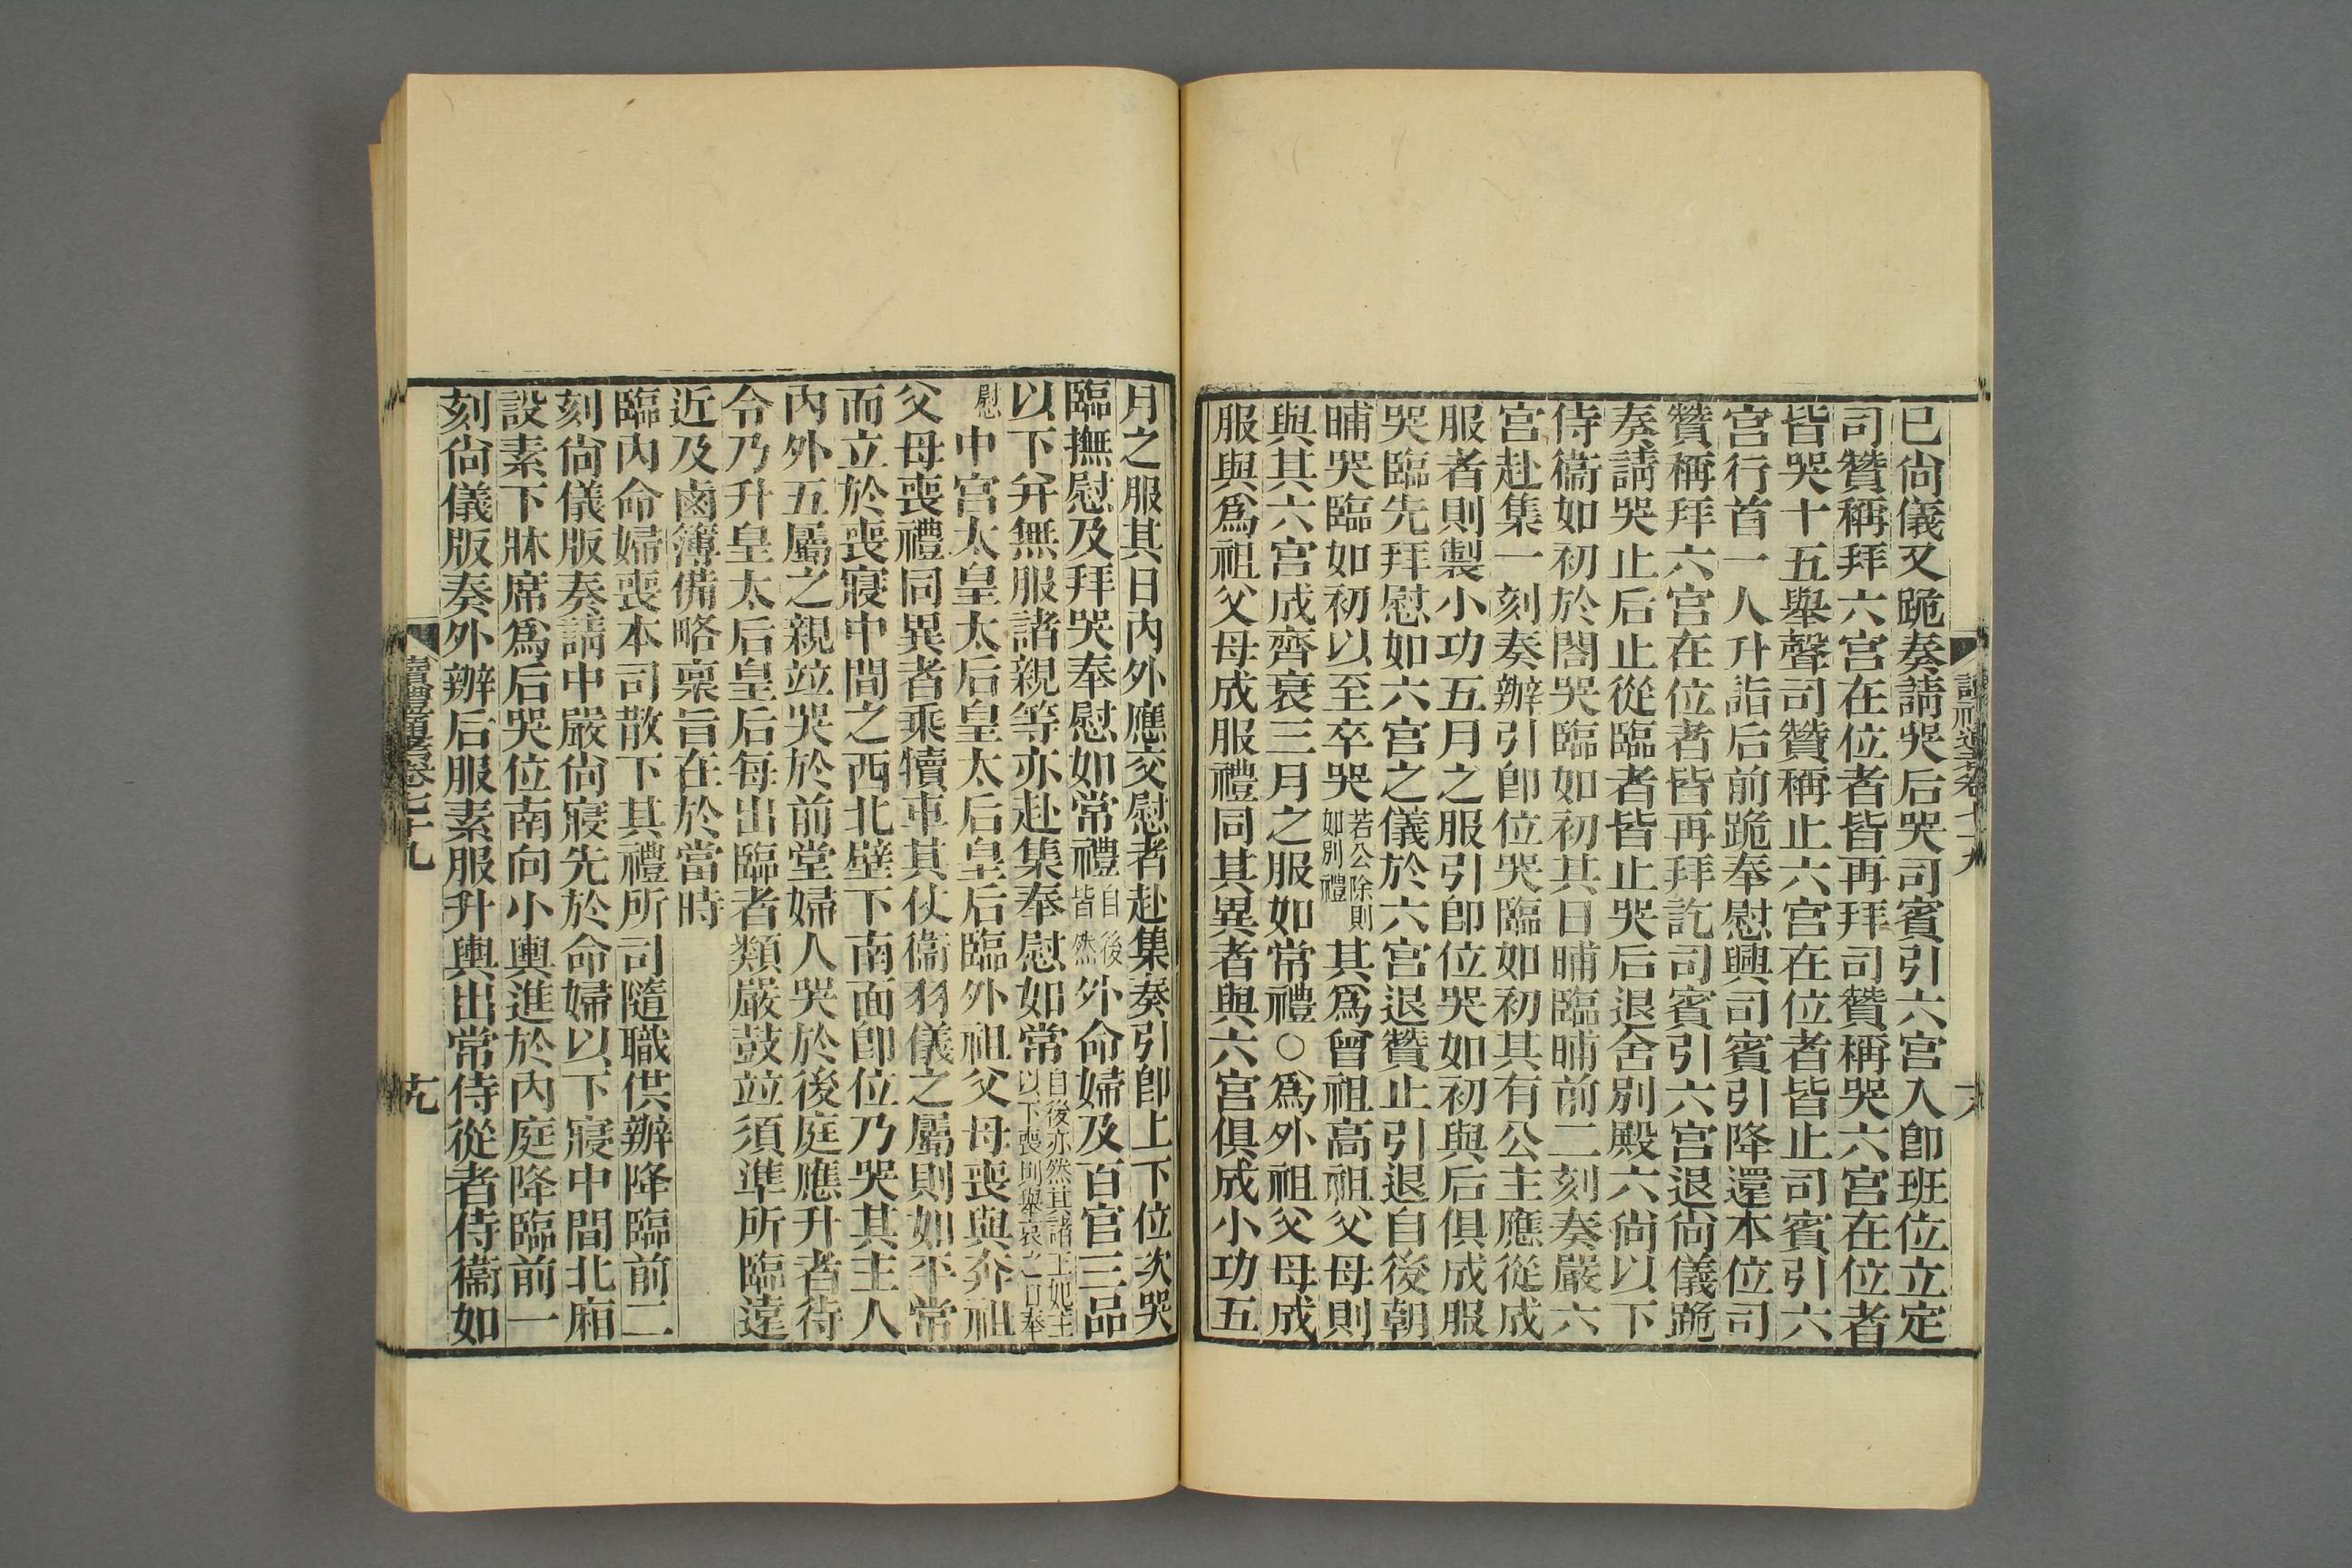 已尙儀又跪奏請哭后哭司賓引六宮入卽班位立定
司贊稱拜六宮在位者皆再拜司贊稱哭六宮在位者
皆哭十五舉聲司贊稱止六宮在位者皆止司賓引六
宮行首一人升詣后前跪奉慰興司賓引降還本位司
贊稱拜六宮在位者皆再拜訖司賓引六宮退尙儀跪
奏請哭止后止從臨者皆止哭后退舍別殿六尙以下
侍衞如初於閤哭臨如初其日晡臨晡前二刻奏嚴六
宮赴集一刻奏辦引卽位哭臨如初其有公主應從成
服者則製小功五月之服引卽位哭如初與后俱成服
哭臨先拜慰如六宮之儀於六宮退贊止引退自後朝
晡哭臨如初以至卒哭若公除則如別禮其爲曾祖高祖父母則
與其六宮成齊衰三月之服如常禮○爲外祖父母成
服與爲祖父母成服禮同其異者與六宮俱成小功五
月之服其日內外應交慰者赴集奏引卽上下位次哭
臨撫慰及拜哭奉慰如常禮自後皆然外命婦及百官三品
以下幷無服諸親等亦赴集奉慰如常自後亦然其諸王妃主以下喪則舉哀之日奉
慰中宮太皇太后皇太后皇后臨外祖父母喪與奔祖
父母喪禮同異者乘犢車其仗衞羽儀之屬則如平常
而立於喪寢中間之西北壁下南面卽位乃哭其主人
內外五屬之親竝哭於前堂婦人哭於後庭應升者待
令乃升皇太后皇后每出臨者類嚴鼓竝須準所臨遠
近及鹵簿備略稟旨在於當時
臨內命婦喪本司散下其禮所司隨職供辦降臨前二
刻尙儀版奏請中嚴尙寢先於命婦以下寢中間北廂
設素下牀席爲后哭位南向小輿進於內庭降臨前一
刻尙儀版奏外辦后服素服升輿出常侍從者侍衞如
讀禮通考卷七十九
十九